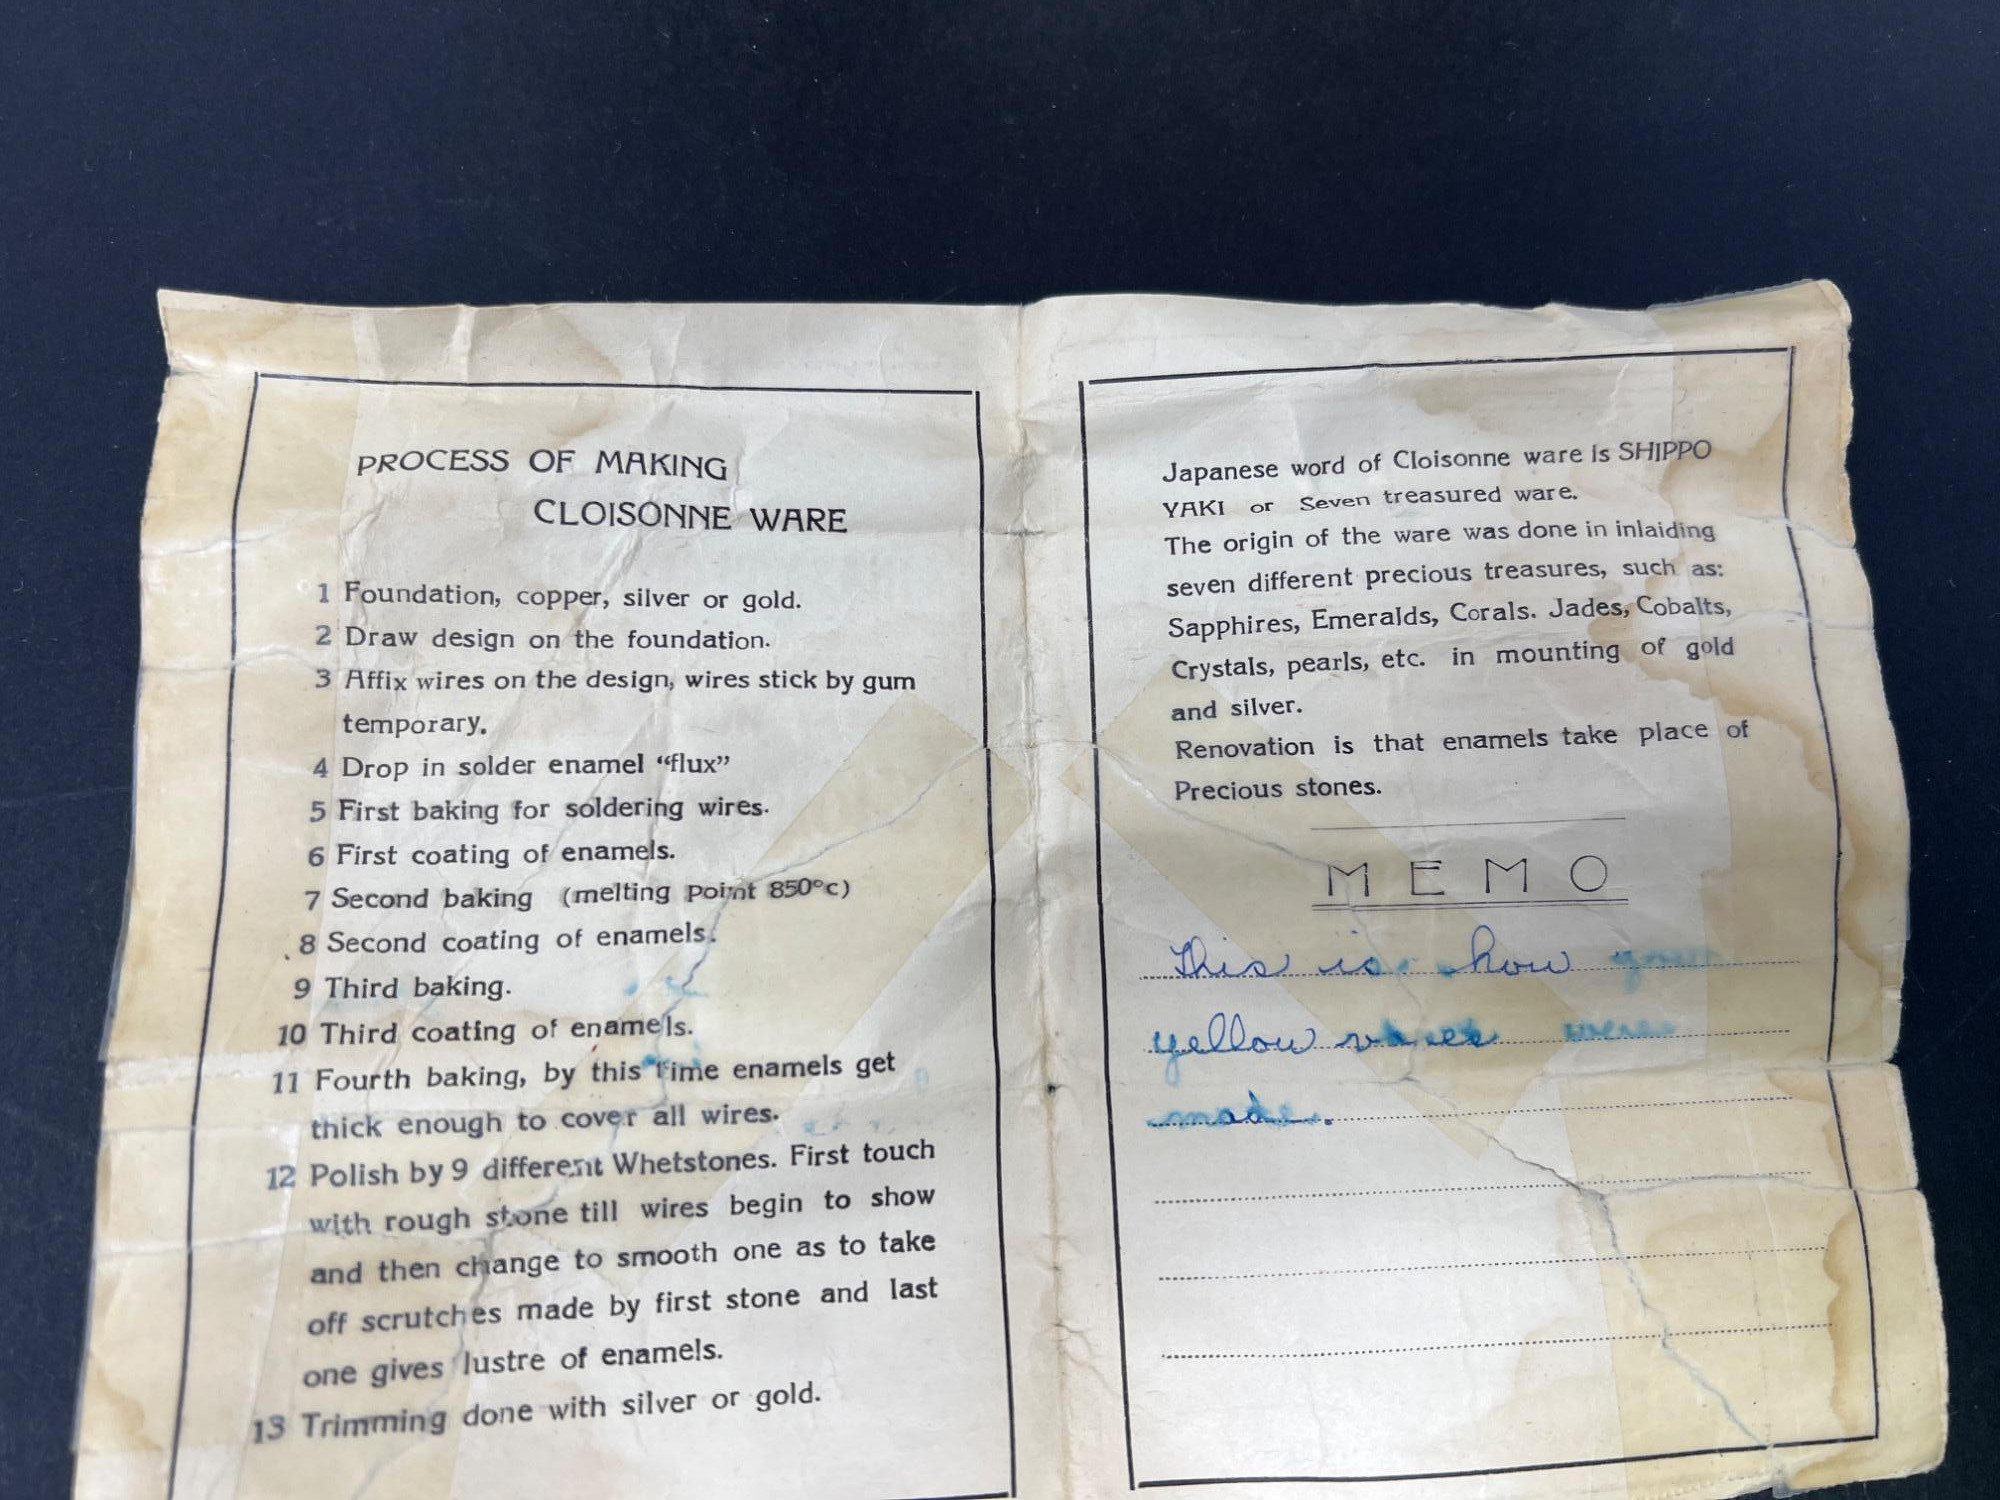 PROCESS OF MAKING
CLOISONNE WARE
1 Foundation, copper, silver or gold.
2 Draw design on the foundation.
3 Affix wires on the design, wires stick by gum
temporary.
4 Drop in solder enamel “flux”
5 First baking for soldering wires.
6 First coating of enamels.
7 Second baking (melting point 850°c)
8 Second coating of enamels.
9 Third baking.
10 Third coating of enamels.
11 Fourth baking, by this time enamels get
thick enough to cover all wires.
12 Polish by 9 different Whetstones. First touch
with rough stone till wires begin to show
and then change to smooth one as to take
off scrutches made by first stone and last
one gives lustre of enamels.
13 Trimming done with silver or gold.
Japanese word of Cloisonne ware is SHIPPO
YAKI or Seven treasured ware.
The origin of the ware was done in inlaiding
seven different precious treasures, such as:
Sapphires, Emeralds, Corals. Jades, Cobalts,
Crystals, pearls, etc. in mounting of gold
and silver.
Renovation is that enamels take place of
Precious stones.
MEMO
This is how
yellow vases were
made.